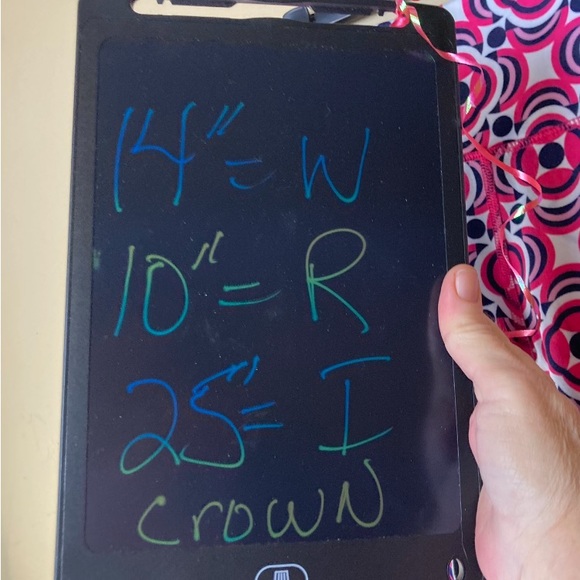 14" = W
10" = R
25" = I
crowN